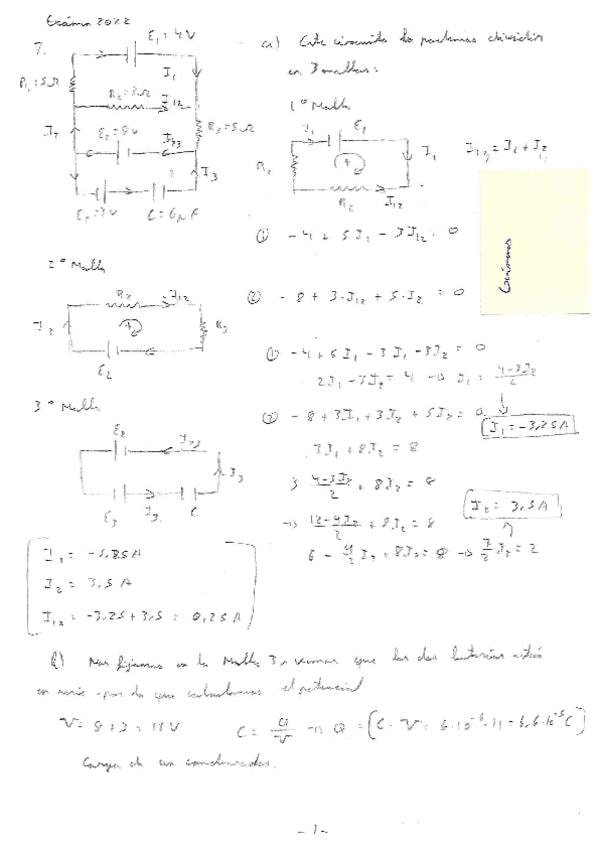 Exámen 2022
7.
E₁ = 4V
I₁
R₁ = 5Ω
R₂ = 3Ω
I₁₂
I₂
E₂ = 8V
I₂₃
R₃ = 5Ω
I₃
E₃ = 3V
C = 6μF
a) Este circuito lo podemos dividir
en 3 mallas:
1º Malla
I₁
E₁
I₁
R₁
R₂
I₁₂
I₁₂ = I₁ + I₂
① - 4 + 5I₁ - 3I₁₂ = 0
2º Malla
R₂
I₁₂
I₂
R₃
E₂
② - 8 + 3·I₁₂ + 5·I₂ = 0
① - 4 + 5I₁ - 3I₁ - 3I₂ = 0
2I₁ - 3I₂ = 4 → I₁ = (4-3I₂)/2
3º Malla
E₂
I₂₃
I₃
E₃
I₃
C
② - 8 + 3I₁ + 3I₂ + 5I₂ = 0
I₁ = -3,25A
3I₁ + 8I₂ = 8
3 (4-3I₂)/2 + 8I₂ = 8
I₂ = 3,5A
→ (12-9I₂)/2 + 8I₂ = 8
6 - 9/2 I₂ + 8I₂ = 8 → 7/2 I₂ = 2
I₂ = 3,5 A
I₁₂ = -3,25 + 3,5 = 0,25A
b) Nos fijamos en la Malla 3, vemos que las dos baterías están
en serie por lo que calculamos el potencial
V = 8 + 3 = 11V
C = Q/V → Q = C·V = 6·10⁻⁶·11 = 6,6·10⁻⁵C
Carga de un condensador.
- 1 -